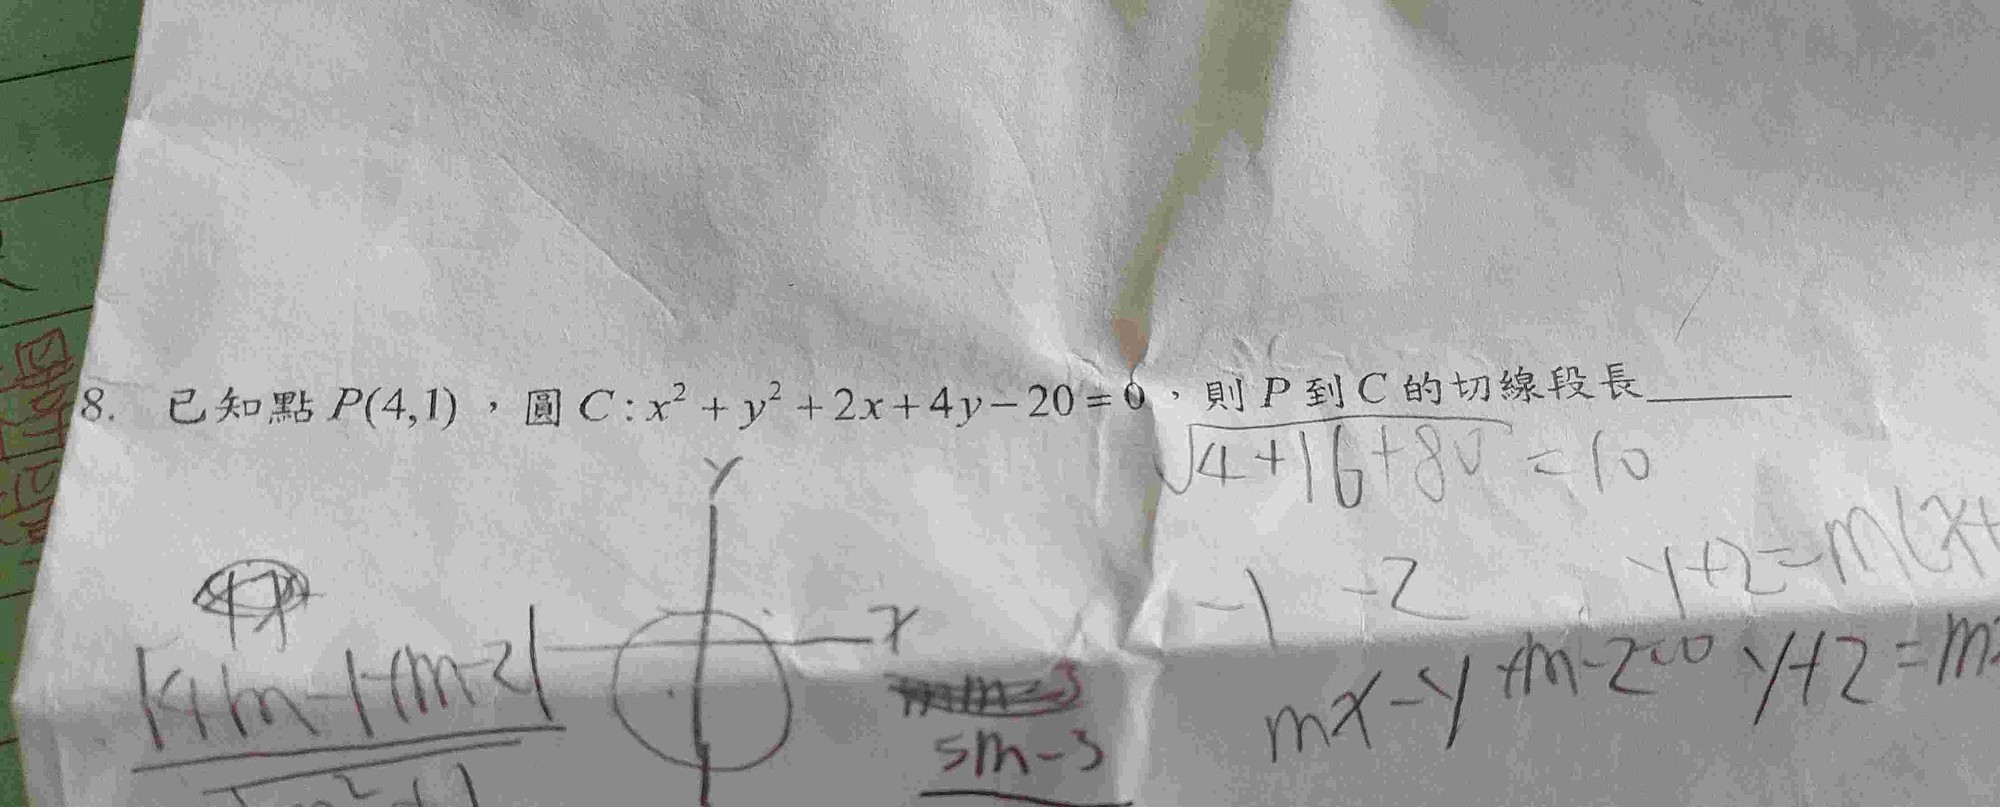 8. 已知點 P(4,1),圓 C : x² + y² + 2x + 4y − 20 = 0,則 P 到 C 的切線段長______
√4+16+80 = 10
Y
-1 -2 y+2=m(x+
x
|4m-1+m-2| mx-y+m-2=0 y+2=m
5m-3